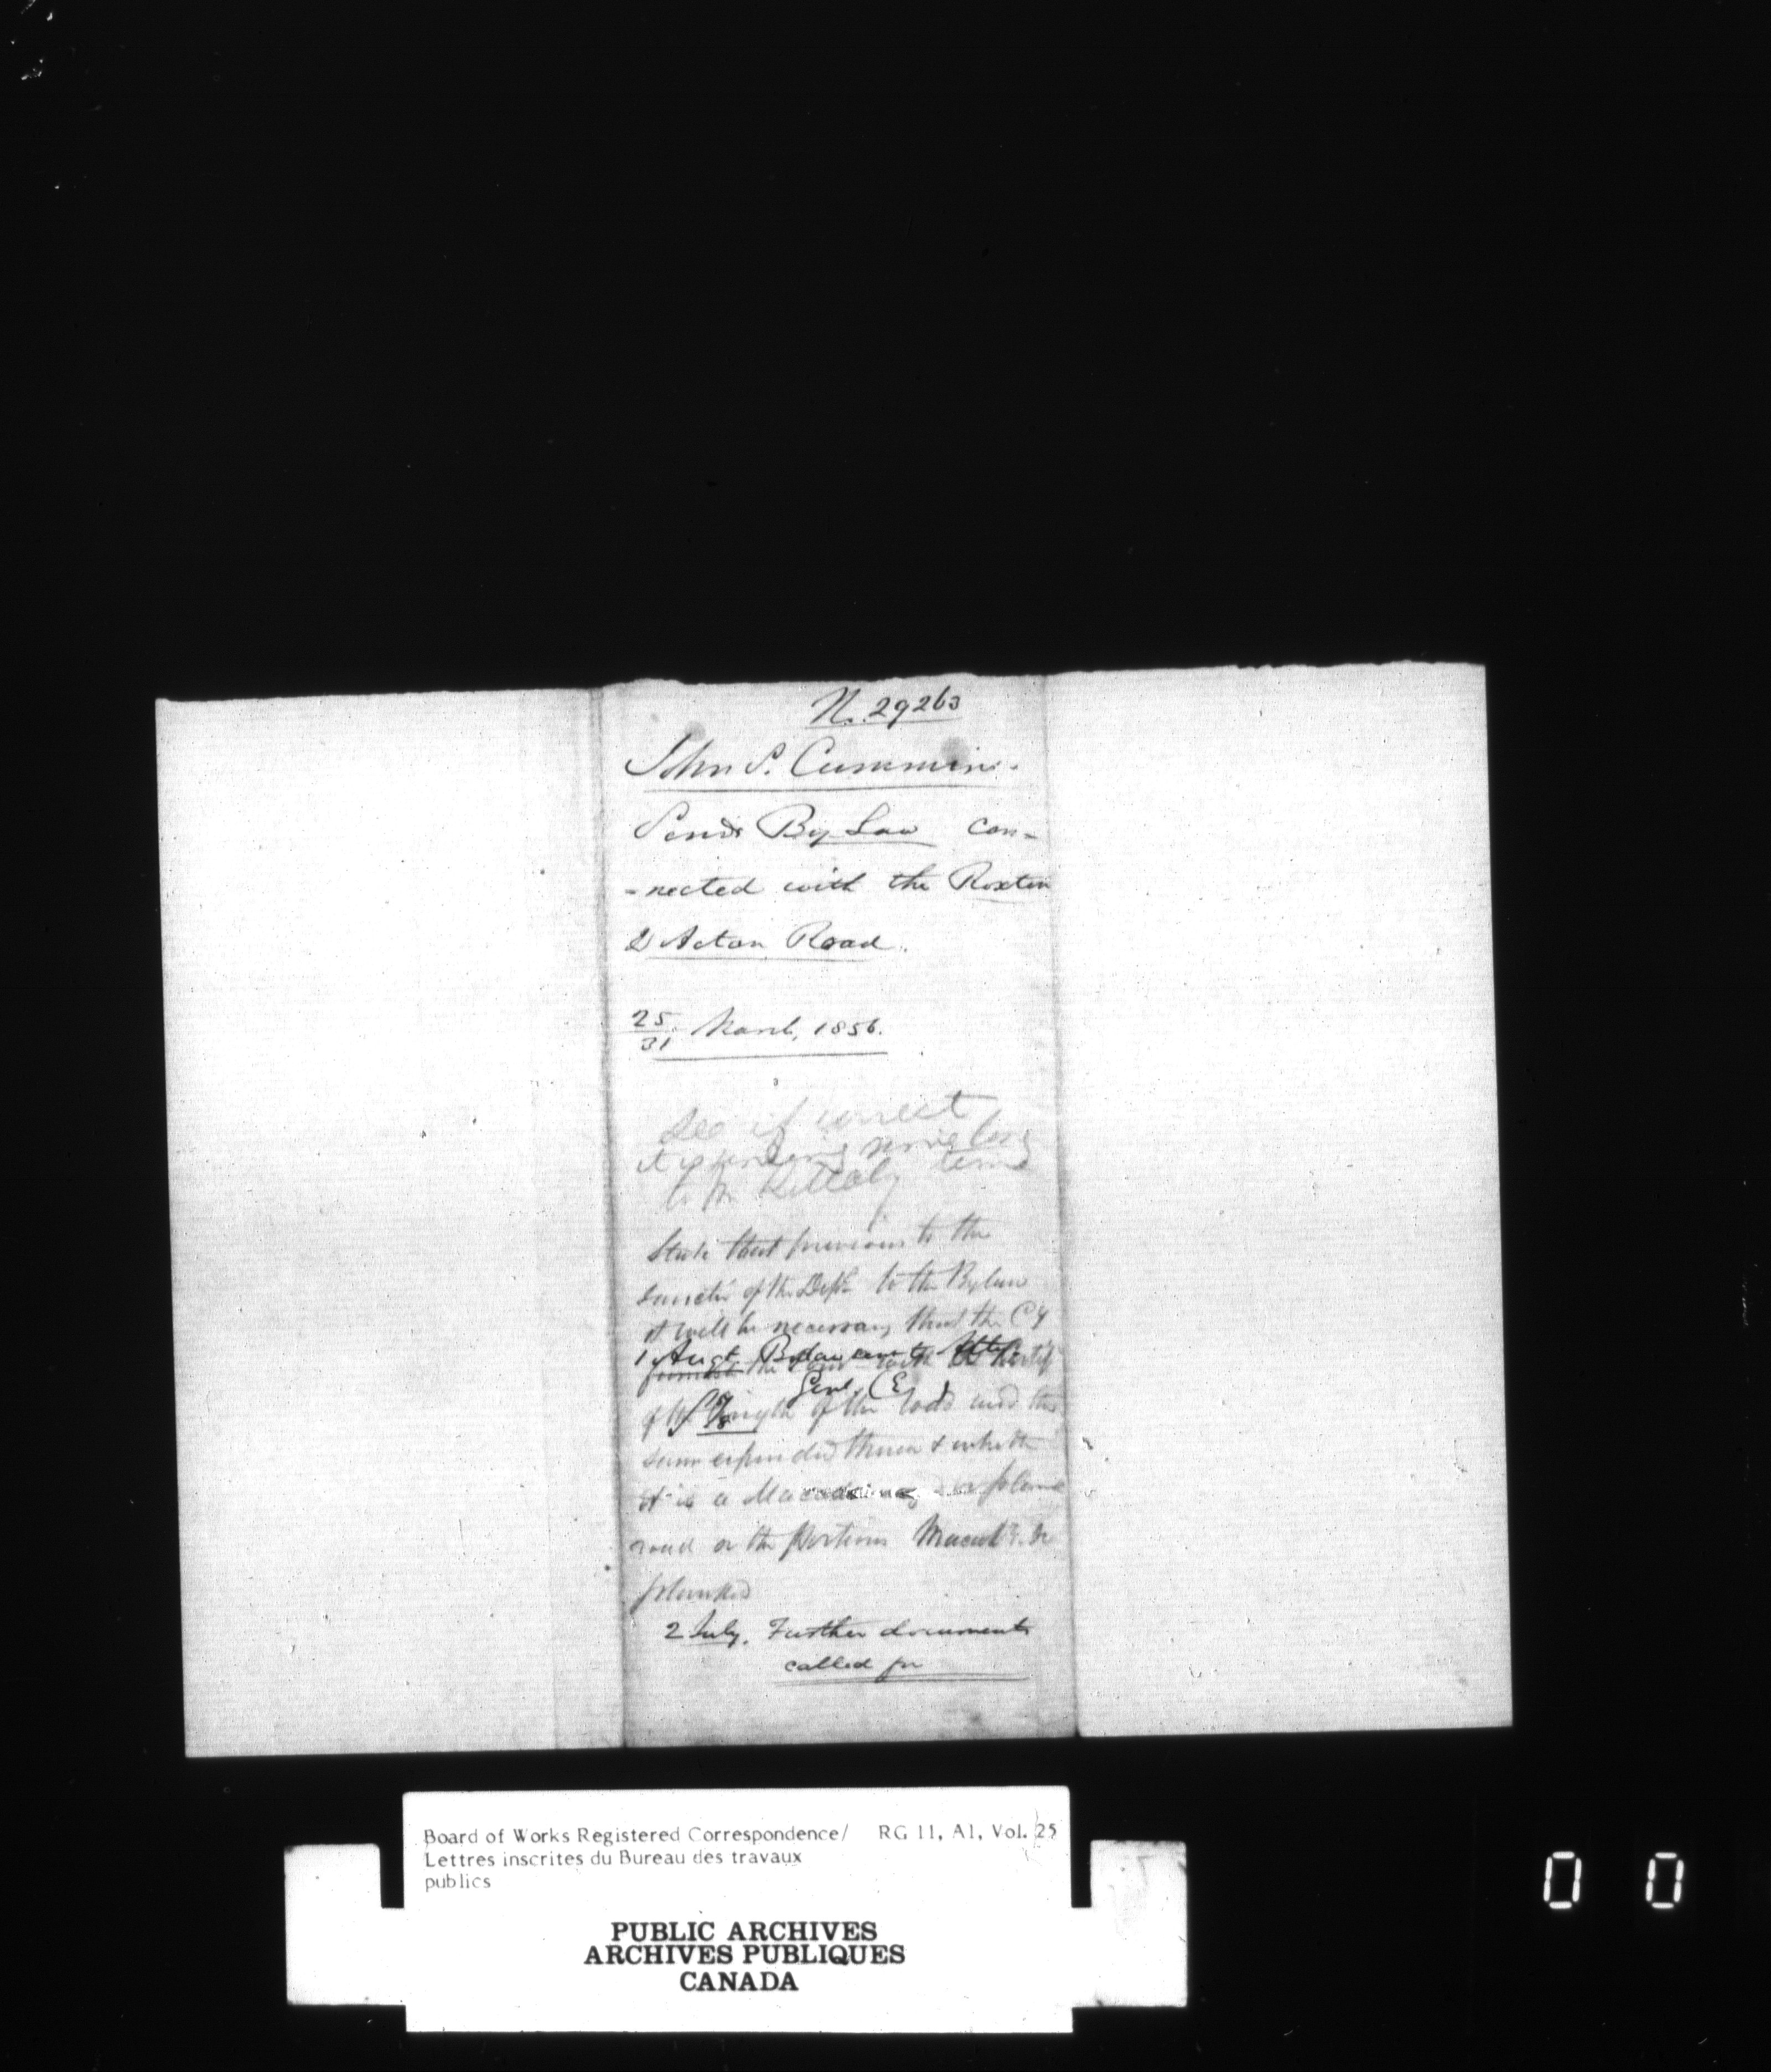 N. 29263
John S. Cummins.
Sends By-Law con-
-nected with the Roxton
& Acton Road.
25/31 March, 1856.
See if correct
State that previous to the
of the Dept to the Bylaw
it will be necessary that the Cy
1 Augt. Bylaw sent to Atty
Genl. (E)
of the length of the road and the
sum expended thereon & whether
it is a or plank
road or the portions
planked
2 July. Further documents
called for
Board of Works Registered Correspondence/ RG 11, A1, Vol. 25
Lettres inscrites du Bureau des travaux
publics
PUBLIC ARCHIVES
ARCHIVES PUBLIQUES
CANADA
0 0